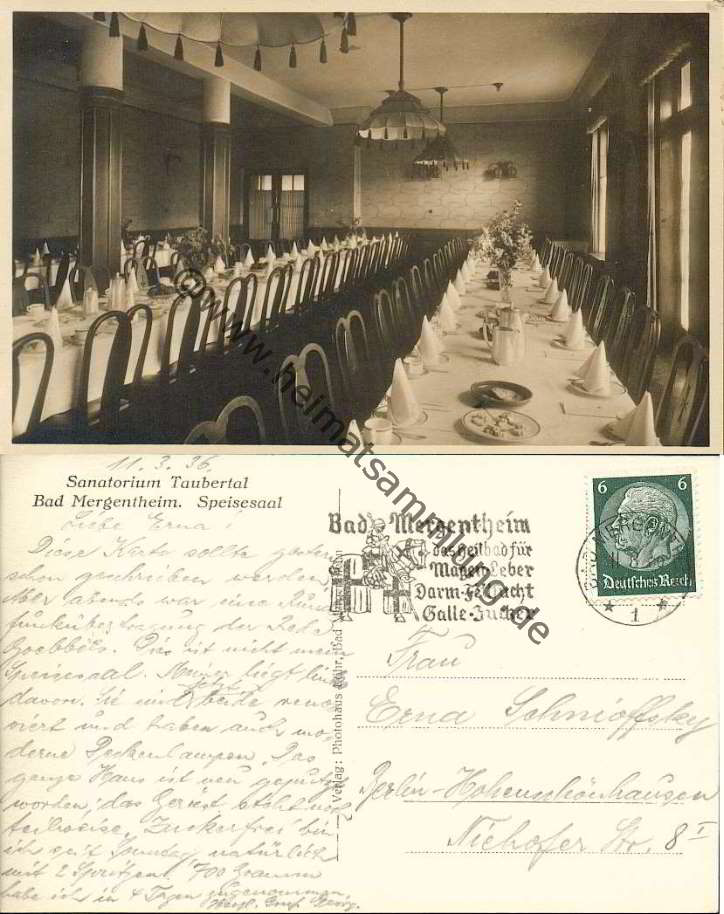 © www.heimatsammlung.de
11.3.36.
Sanatorium Taubertal
Bad Mergentheim. Speisesaal
Liebe Erna!
Diese Karte sollte gestern
schon geschrieben werden
Aber abends war eine Rund
funkübertragung der Rede
Goebbels. Dies ist nicht mein
Speisesaal. Meiner liegt links
davon. Sie sind beide reno
viert und haben auch mo
derne Deckenlampen. Das
ganze Haus ist neu geputzt
worden, das Gerüst steht noch
teilweise. Zuckerfrei bin
ich seit Sonntag natürlich
mit 2 Spritzen, 700 Gramm
habe ich in 4 Tagen zugenommen.
Herzl. Gruß Georg.
Verlag: Photohaus
Bad Mergentheim
das Heilbad für
Magen-Leber
Darm-Fettsucht
Galle-Zucker
6 6
Deutsches Reich
BAD MERGENTHEIM
1
Frau
Erna Schmioffsky
Berlin-Hohenschönhausen
Niehofer Str. 8 I